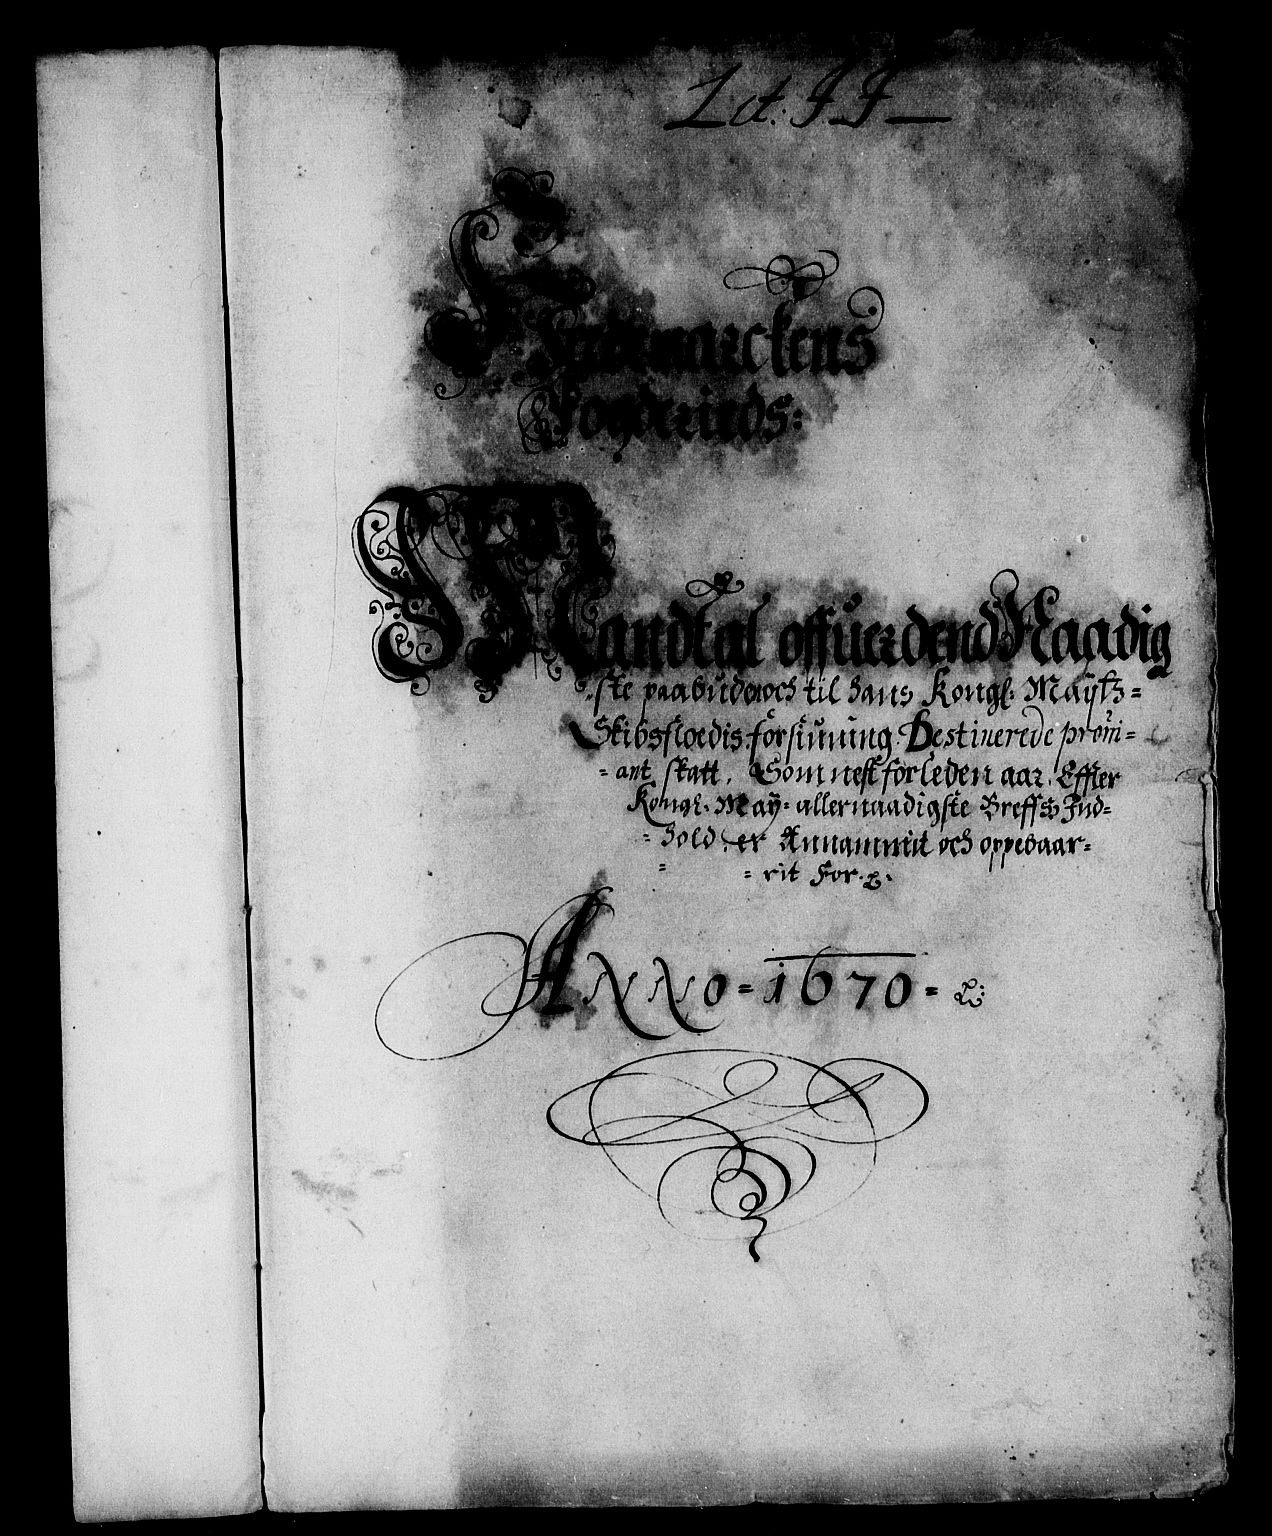 Lit: JJ
Findmarckens
Fogderieds:
Mandtal offuer dend Naadig
ste paabudenoch til hans Kongl: Maÿtz=
Skibsfloedis forsiuning Destinerede provi=
=ant skatt, Som nest forleden aar, Effter
Kongl. Maÿ= allernaadigste Breffs Ind=
=hold er Annammit och oppebaar=
=rit For. &.
ANNO=1670=&: